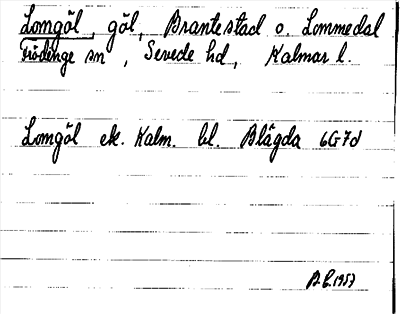 Lomgöl, göl, Brantestad o. Lommedal
Frödinge sn, Sevede hd, Kalmar l.
Lomgöl ek. Kalm. bl. Blågda 6G7d